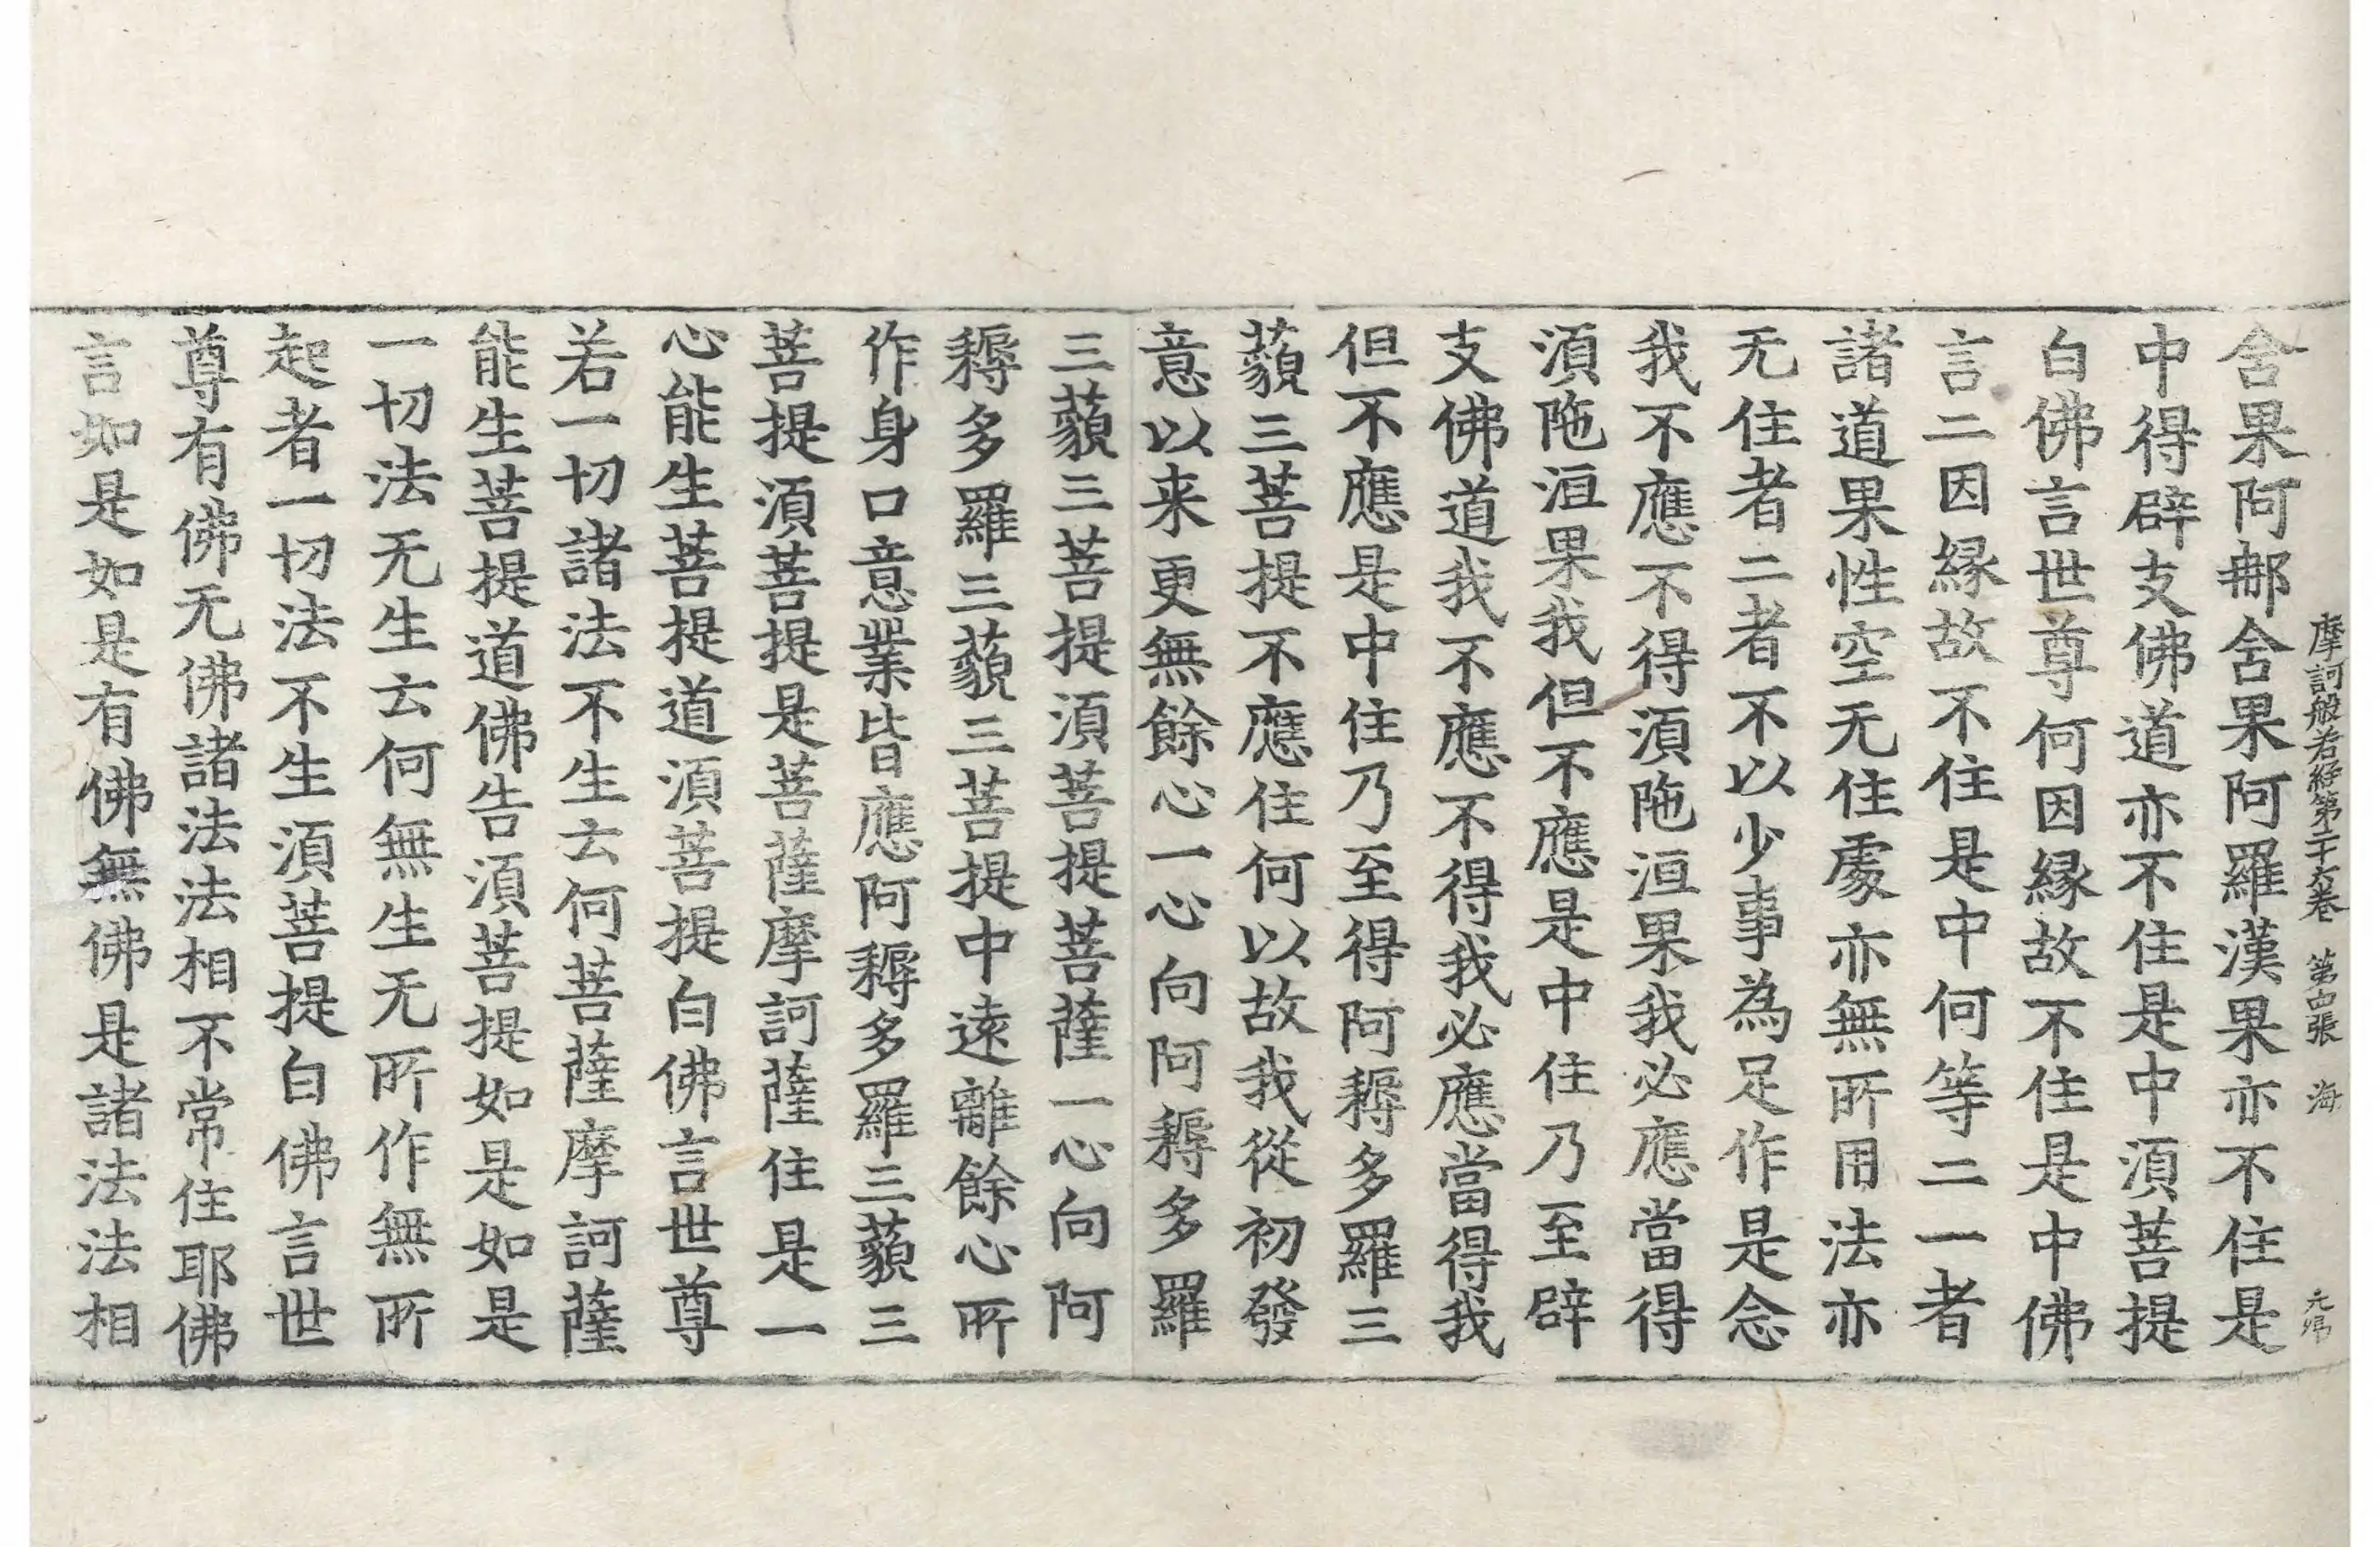 摩訶般若經第二十六卷 第四張 海
舍果阿那舍果阿羅漢果亦不住是
中得辟支佛道亦不住是中湏菩提
白佛言世尊何因緣故不住是中佛
言二因緣故不住是中何等二一者
諸道果性空无住處亦無所用法亦
无住者二者不以少事為足作是念
我不應不得湏陁洹果我必應當得
湏陁洹果我但不應是中住乃至辟
支佛道我不應不得我必應當得我
但不應是中住乃至得阿耨多羅三
藐三菩提不應住何以故我從初發
意以来更無餘心一心向阿耨多羅
三藐三菩提湏菩提菩薩一心向阿
耨多羅三藐三菩提中遠離餘心所
作身口意業皆應阿耨多羅三藐三
菩提湏菩提是菩薩摩訶薩住是一
心能生菩提道湏菩提白佛言世尊
若一切諸法不生云何菩薩摩訶薩
能生菩提道佛告湏菩提如是如是
一切法无生云何無生无所作無所
起者一切法不生湏菩提白佛言世
尊有佛无佛諸法法相不常住耶佛
言如是如是有佛無佛是諸法法相